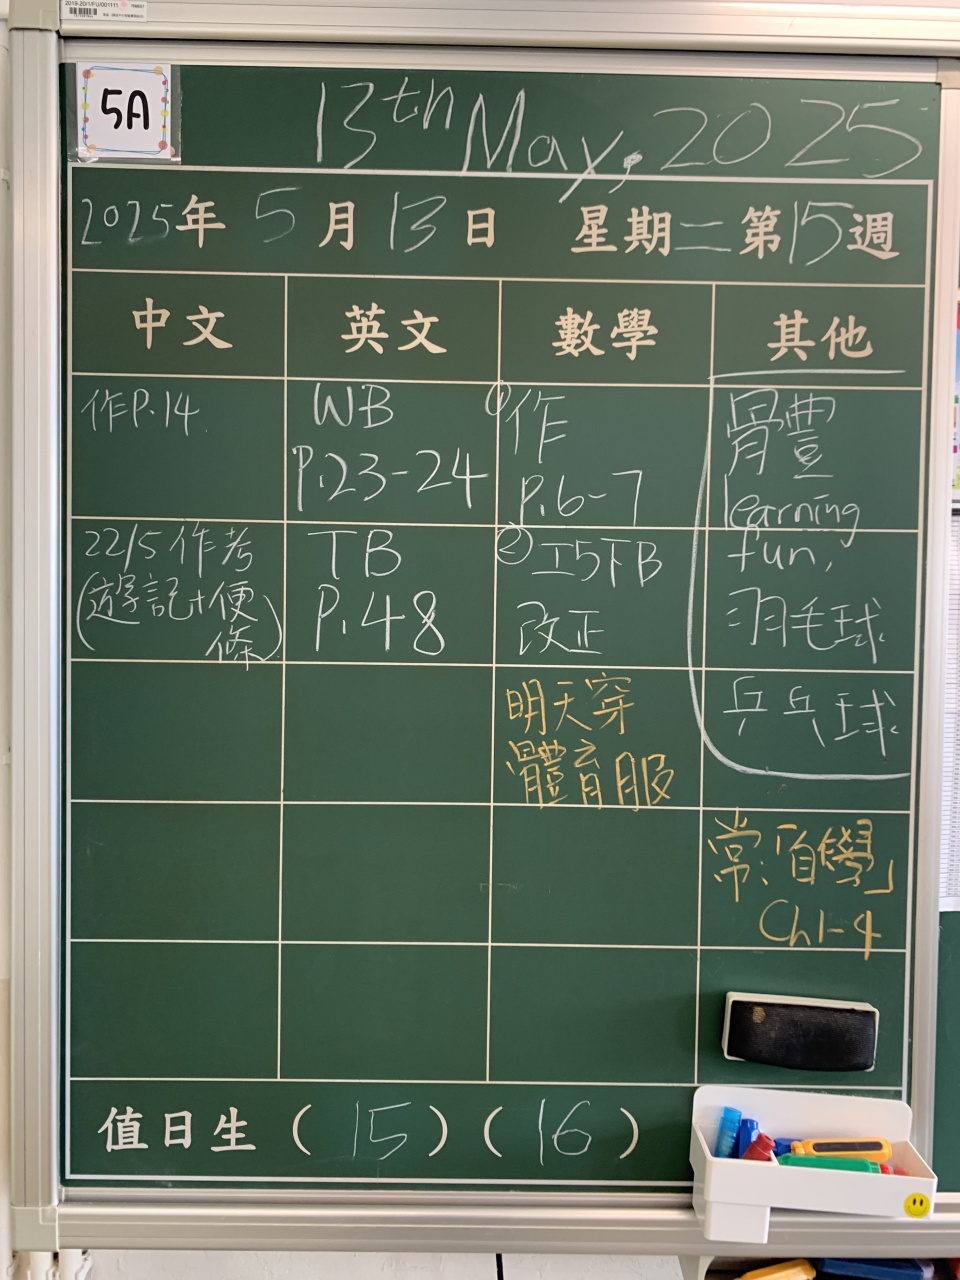 5A
13th May, 2025
2025年 5月13日 星期二 第15週
中文 英文 數學 其他
作P.14
WB
P.23-24
①作
P.6-7
體豐
learning
fun,
22/5 作考
(遊記+便
條)
TB
P.48
② 工5下B
改正
羽毛球
明天穿
體育服
乒乓球
常:「自學」
Ch1-4
值日生 (15) (16)